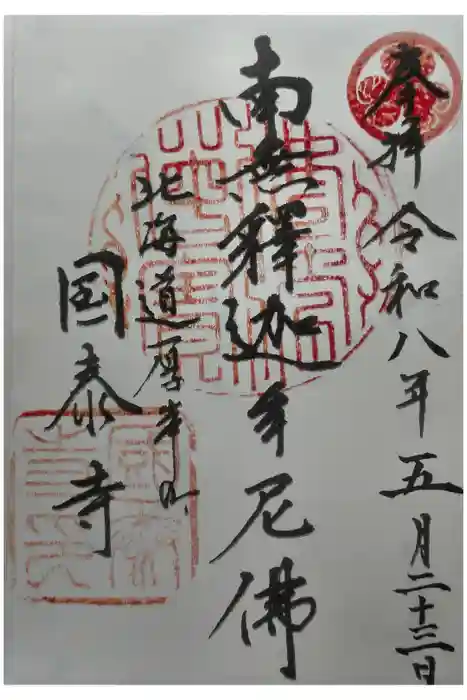 奉拝 令和八年五月二十三日
南無釋迦牟尼佛
北海道厚岸町
国泰寺